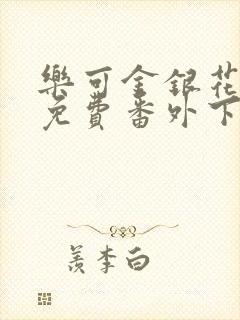 樂可金銀花
免費番外下
羨李白